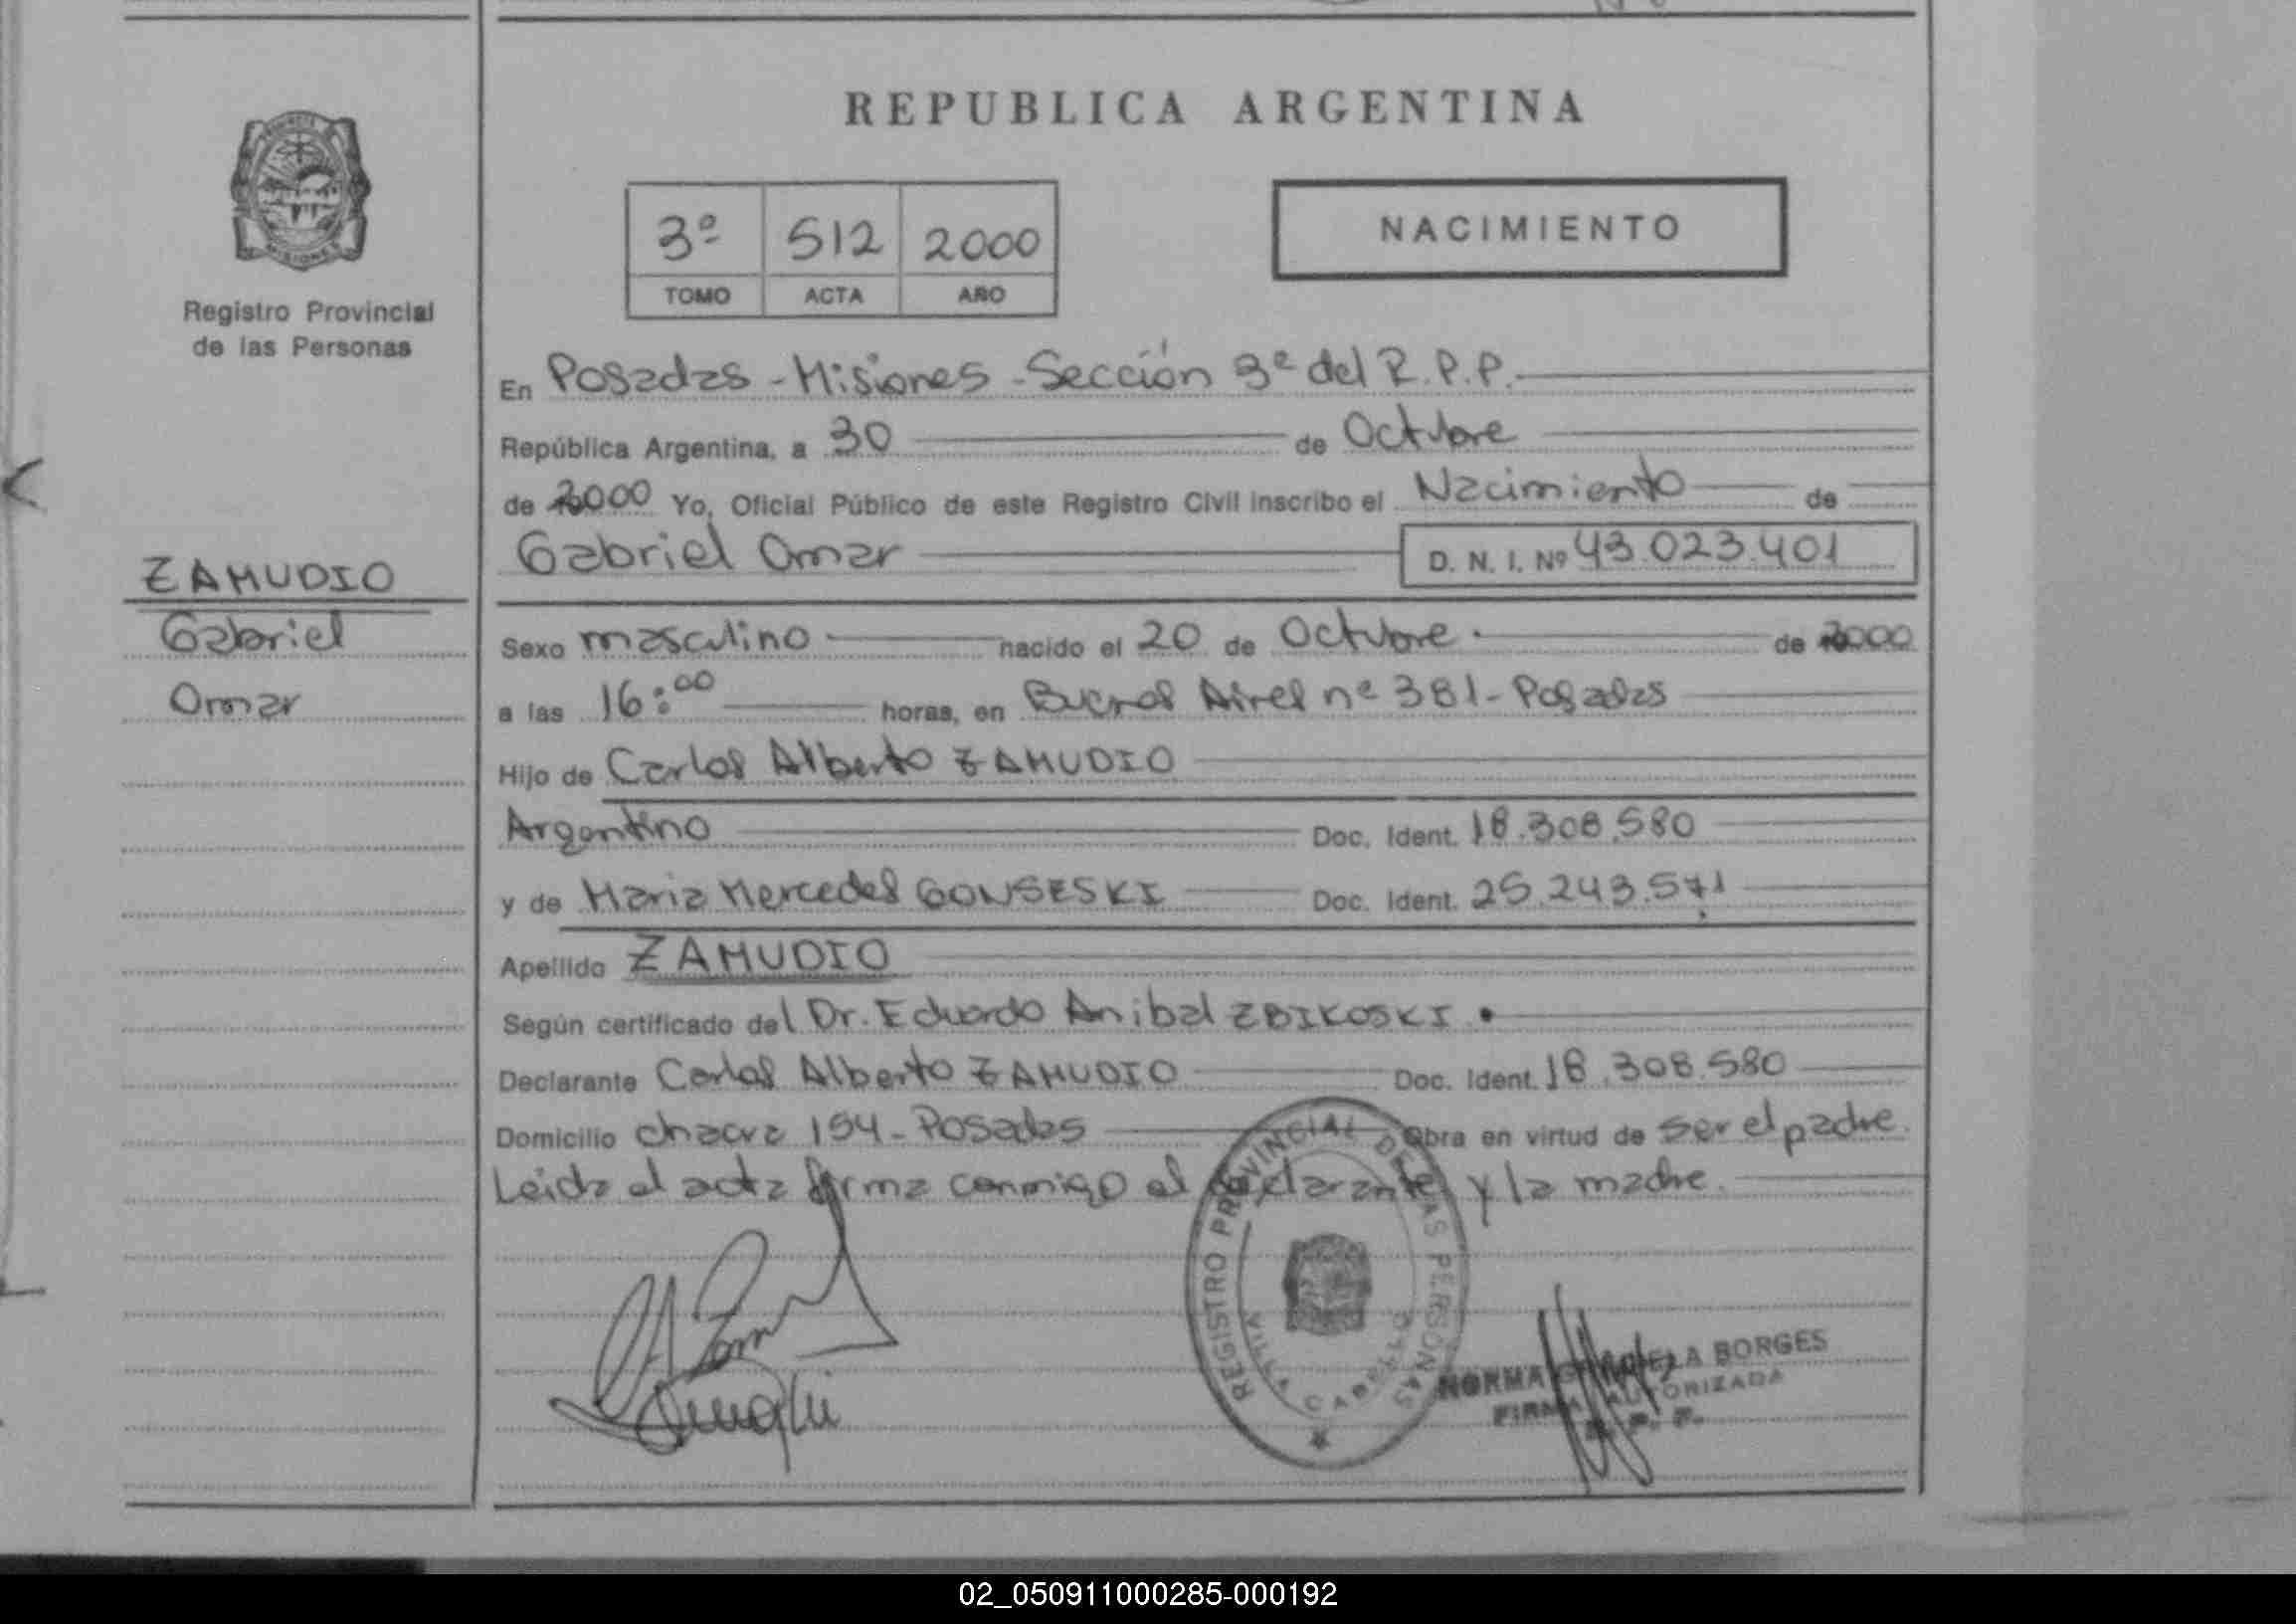 REPUBLICA ARGENTINA
3º 512 2000
TOMO ACTA AÑO
NACIMIENTO
Registro Provincial
de las Personas
En Posadas - Misiones - Sección 3ª del R.P.P.
República Argentina, a 30 de Octubre
de 2000 Yo, Oficial Público de este Registro Civil inscribo el Nacimiento de
Gabriel Omar D. N. I. Nº 43.023.401
ZAMUDIO
Gabriel
Omar
Sexo masculino nacido el 20 de Octubre de 2000
a las 16:00 horas, en Buenos Aires nº 381 - Posadas
Hijo de Carlos Alberto ZAMUDIO
Argentino Doc. Ident. 18.308.580
y de Maria Mercedes GONSESKI Doc. Ident. 25.243.571
Apellido ZAMUDIO
Según certificado del Dr. Eduardo Anibal ZBIKOSKI.
Declarante Carlos Alberto ZAMUDIO Doc. Ident. 18.308.580
Domicilio chacra 154 - Posadas Obra en virtud de ser el padre.
Leida el acta firma conmigo el declarante y la madre.
REGISTRO PROVINCIAL DE LAS PERSONAS
VILLA CABELLO
NORMA GRACIELA BORGES
FIRMA AUTORIZADA
R. P. P.
02_050911000285-000192